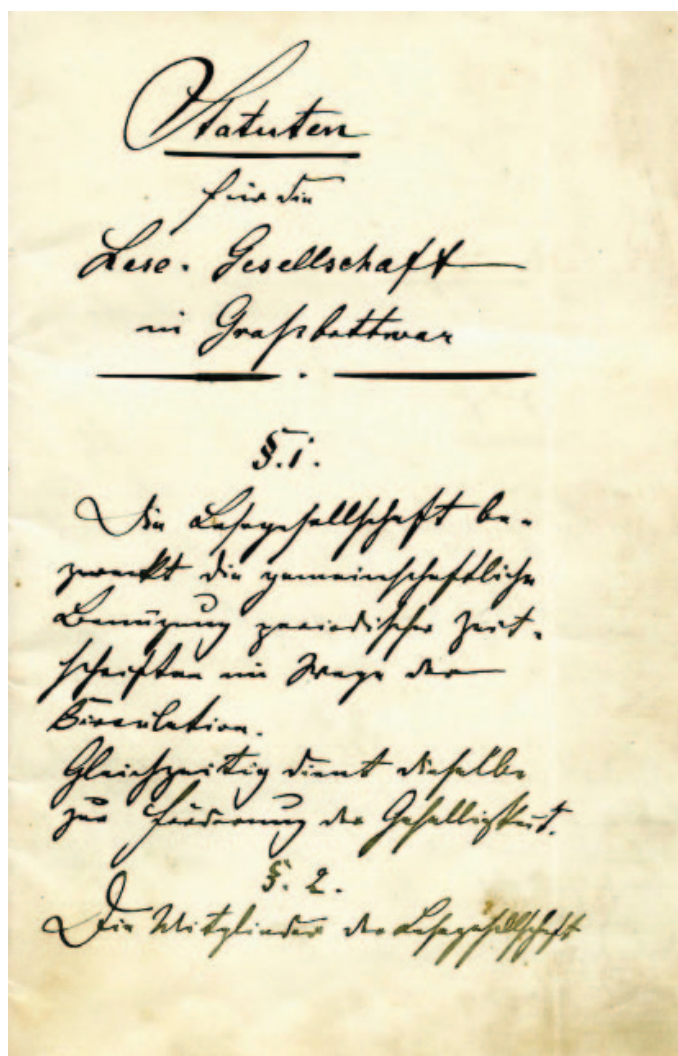 Statuten
für die
Lese-Gesellschaft
in Großbottwar
§. 1.
Die Lesegesellschaft be-
zweckt die gemeinschaftliche
Benüzung periodischer Zeit-
schriften im Wege der
Circulation.
Gleichzeitig dient dieselbe
zur Förderung der Geselligkeit.
§. 2.
Die Mitglieder der Lesegesellschaft